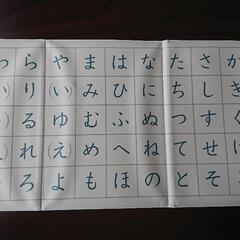 かきくけこ
さしすせそ
たちつてと
なにぬねの
はひふへほ
まみむめも
や(い)ゆ(え)よ
らりるれろ
い)